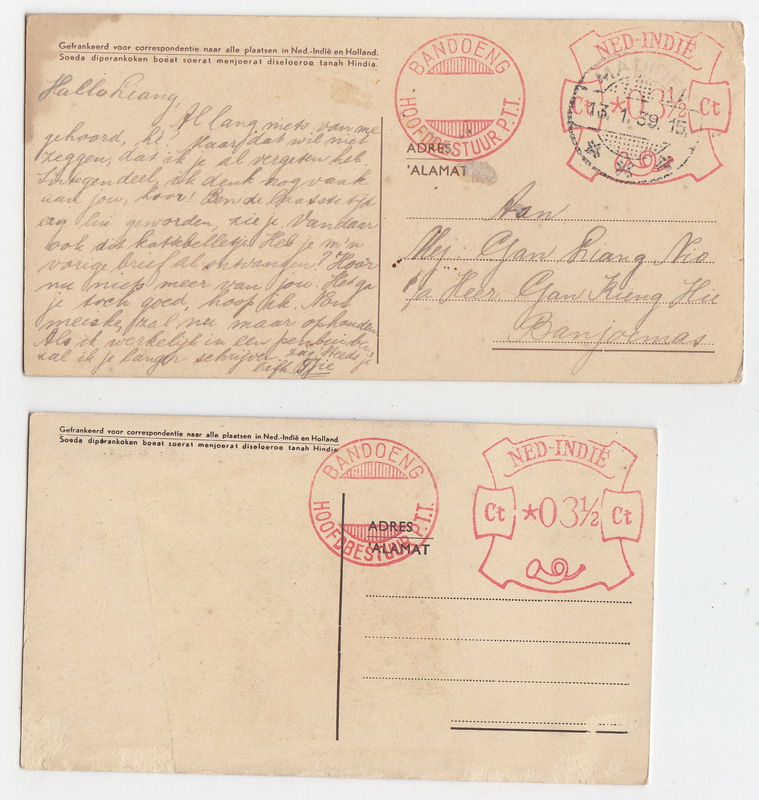 Gefrankeerd voor correspondentie naar alle plaatsen in Ned.-Indië en Holland.
Soeda diperankoken boeat soerat menjoerat diseloeroe tanah Hindia.
Hallo Liang,
Al lang niets van me
gehoord, hè. Maar dat wil niet
zeggen, dat ik je al vergeten heb.
Integendeel, ik denk nog vaak
aan jou, hoor! Ben de laatste tijd
erg lui geworden, zie je. Vandaar
ook dit kattebelletje! Heb je m'n
vorige brief al ontvangen? Hoor
nu niets meer van jou. Het ga
je toch goed, hoop ik. Nou
meiske, zal nu maar ophouden.
Als ik werkelijk in een penbui ben,
zal ik je langer schrijven. Steeds je
liefh.
BANDOENG
HOOFDBESTUUR P.T.T.
NED-INDIË
Ct *03½ Ct
13.1.39.15
ADRES
'ALAMAT
Aan
Mej. Gan Liang Nio
p/a Heer Gan Kung Hie
Banjoemas
Gefrankeerd voor correspondentie naar alle plaatsen in Ned.-Indië en Holland.
Soeda diperankoken boeat soerat menjoerat diseloeroe tanah Hindia.
BANDOENG
HOOFDBESTUUR P.T.T.
NED-INDIË
Ct *03½ Ct
ADRES
'ALAMAT